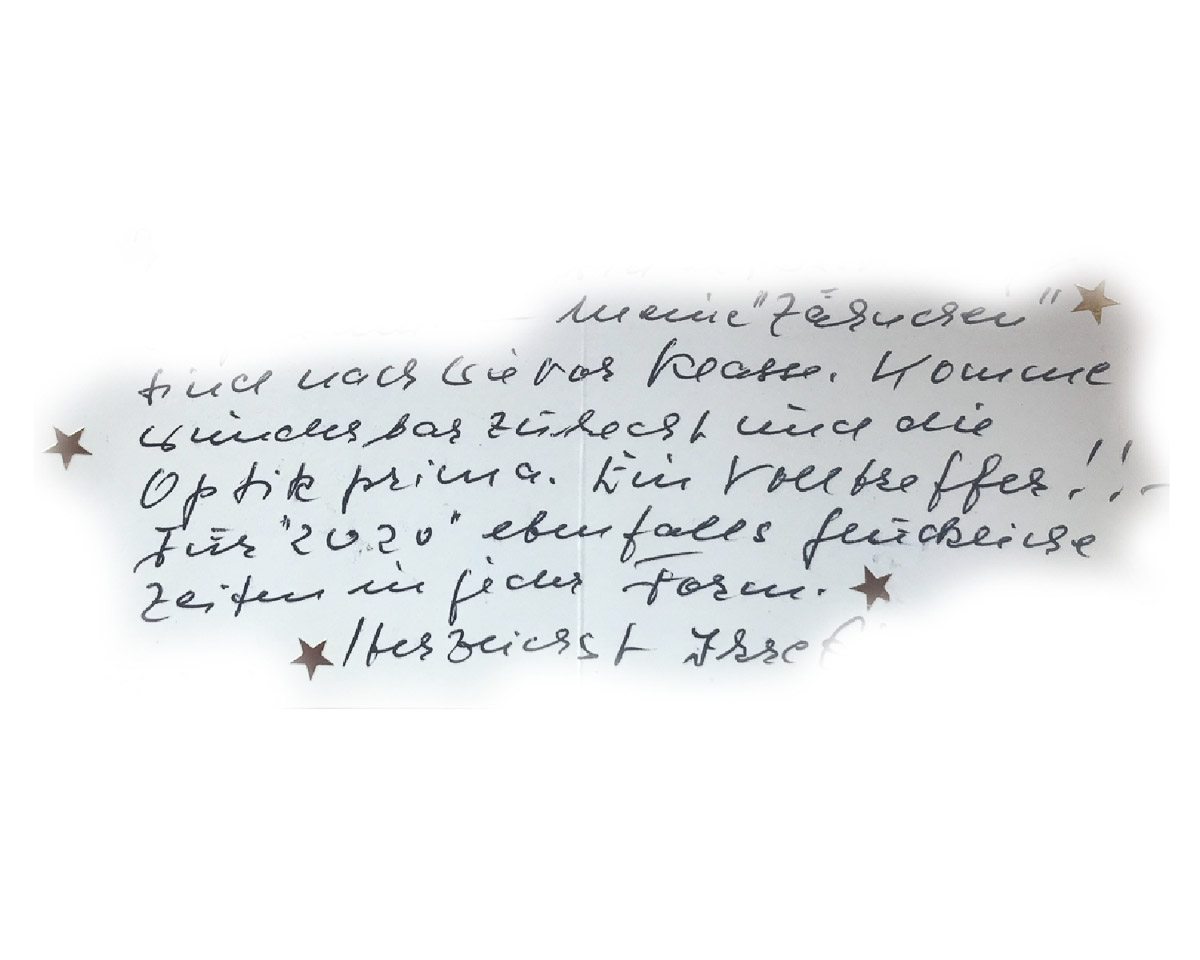 Meine "Zähnchen"
sind nach wie vor klasse. Komme
wunderbar zurecht und die
Optik prima. Ein Volltreffer!!-
Für "2020" ebenfalls glückliche
Zeiten in jeder Form.
Herzlichst Ihre